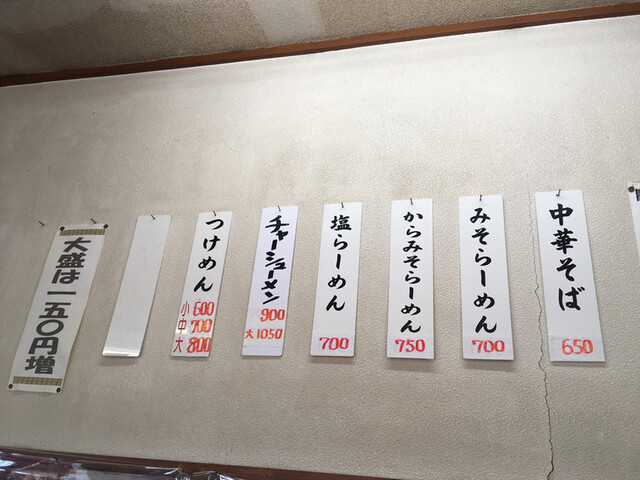 中華そば
650
みそらーめん
700
からみそらーめん
750
塩らーめん
700
チャーシューメン
900
大1050
つけめん
小600
中700
大800
大盛は一五〇円増